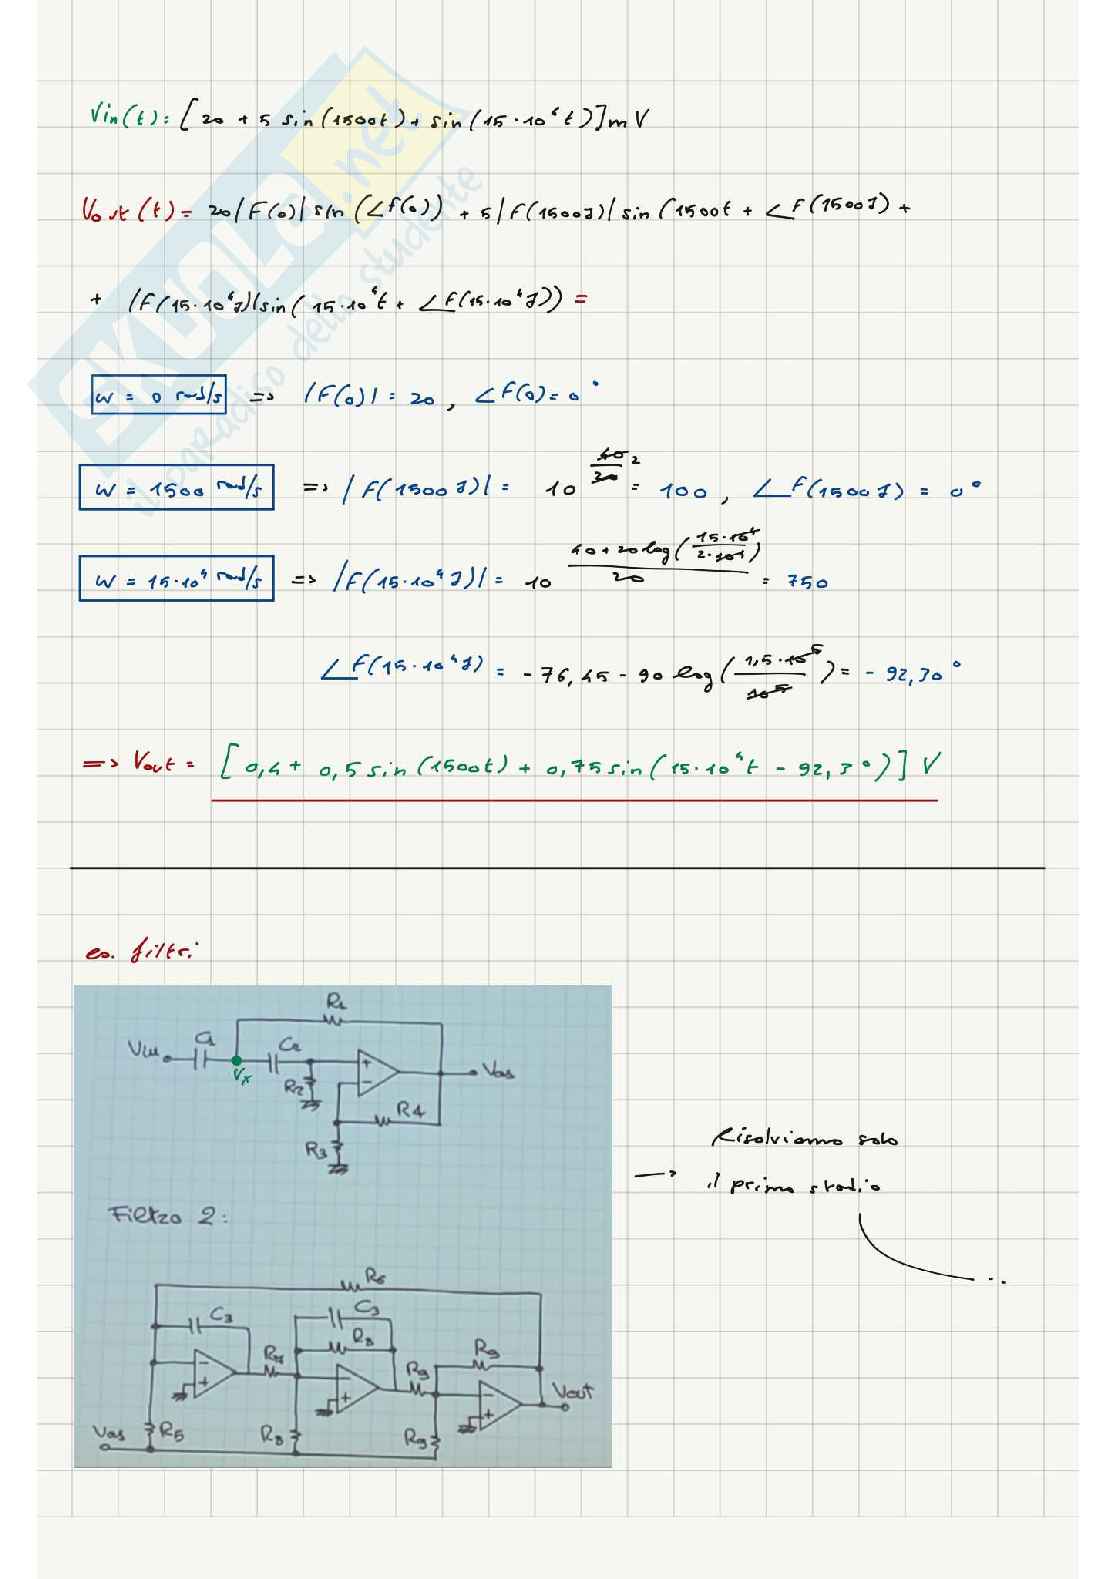 Vin(t): [20 + 5 sin(1500t) + sin(15·10⁴t)] mV
Vout(t) = 20|F(0)| sin(∠F(0)) + 5|F(1500J)| sin(1500t + ∠F(1500J) +
+ |F(15·10⁴J)| sin(15·10⁴t + ∠F(15·10⁴J)) =
w = 0 rad/s => |F(0)| = 20, ∠F(0) = 0°
w = 1500 rad/s => |F(1500J)| = 10^(40/20 2) = 100, ∠F(1500J) = 0°
w = 15·10⁴ rad/s => |F(15·10⁴J)| = 10^((40+20log(15·10⁴/2·10⁴))/20) = 750
∠F(15·10⁴J) = -76,45 - 90 log(1,5·10⁵/10⁵) = -92,30°
=> Vout = [0,4 + 0,5 sin(1500t) + 0,75 sin(15·10⁴t - 92,3°)] V
es. filtri
R1
Vin C1 C2 + Vas
Vx R2 -
R4
R3
Risolviamo solo
-> il primo stadio
Filtro 2:
...
R6
C3 C3
R8
R9
- R9
+ - Vout
+ -
+
Vas R5 R8 R9
SKUOLA.net
il paradiso dello studente